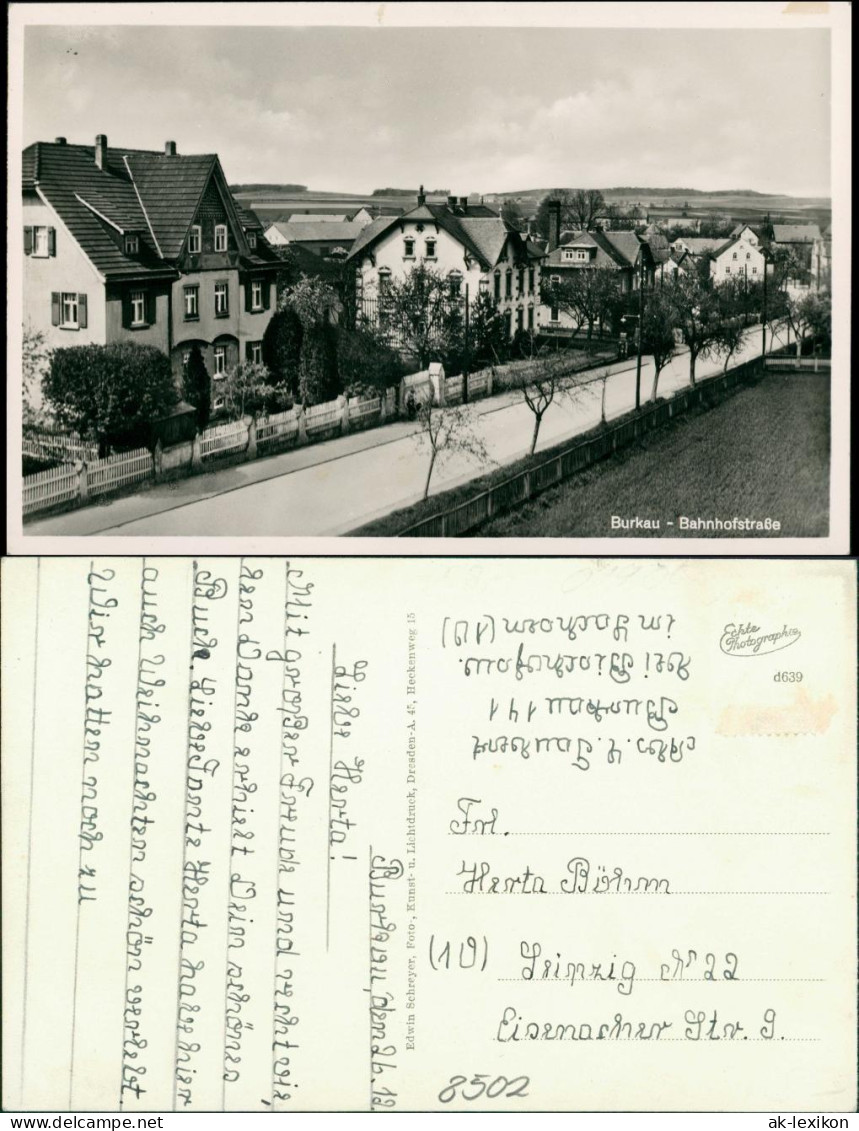 Burkau - Bahnhofstraße
Echte
Photographie
d639
Abs. H. Taubert
Burkau 141
bei Bischofsw.
in Sachsen (10)
Frl.
Herta Böhm
(10) Leipzig N 22
Eisenacher Str. 9.
8502
Edwin Schreyer, Foto-, Kunst- u. Lichtdruck, Dresden-A. 45, Heckenweg 15
Burkau, den 26.12
Liebe Herta!
Mit großer Freude und recht vie
len Dank erhielt Dein schönes
Buch. Liebe Tante Herta habe hier
auch Weihnachten schön verlebt.
Wir hatten noch zu
www.ak-ansichtskarten.de
ak-lexikon